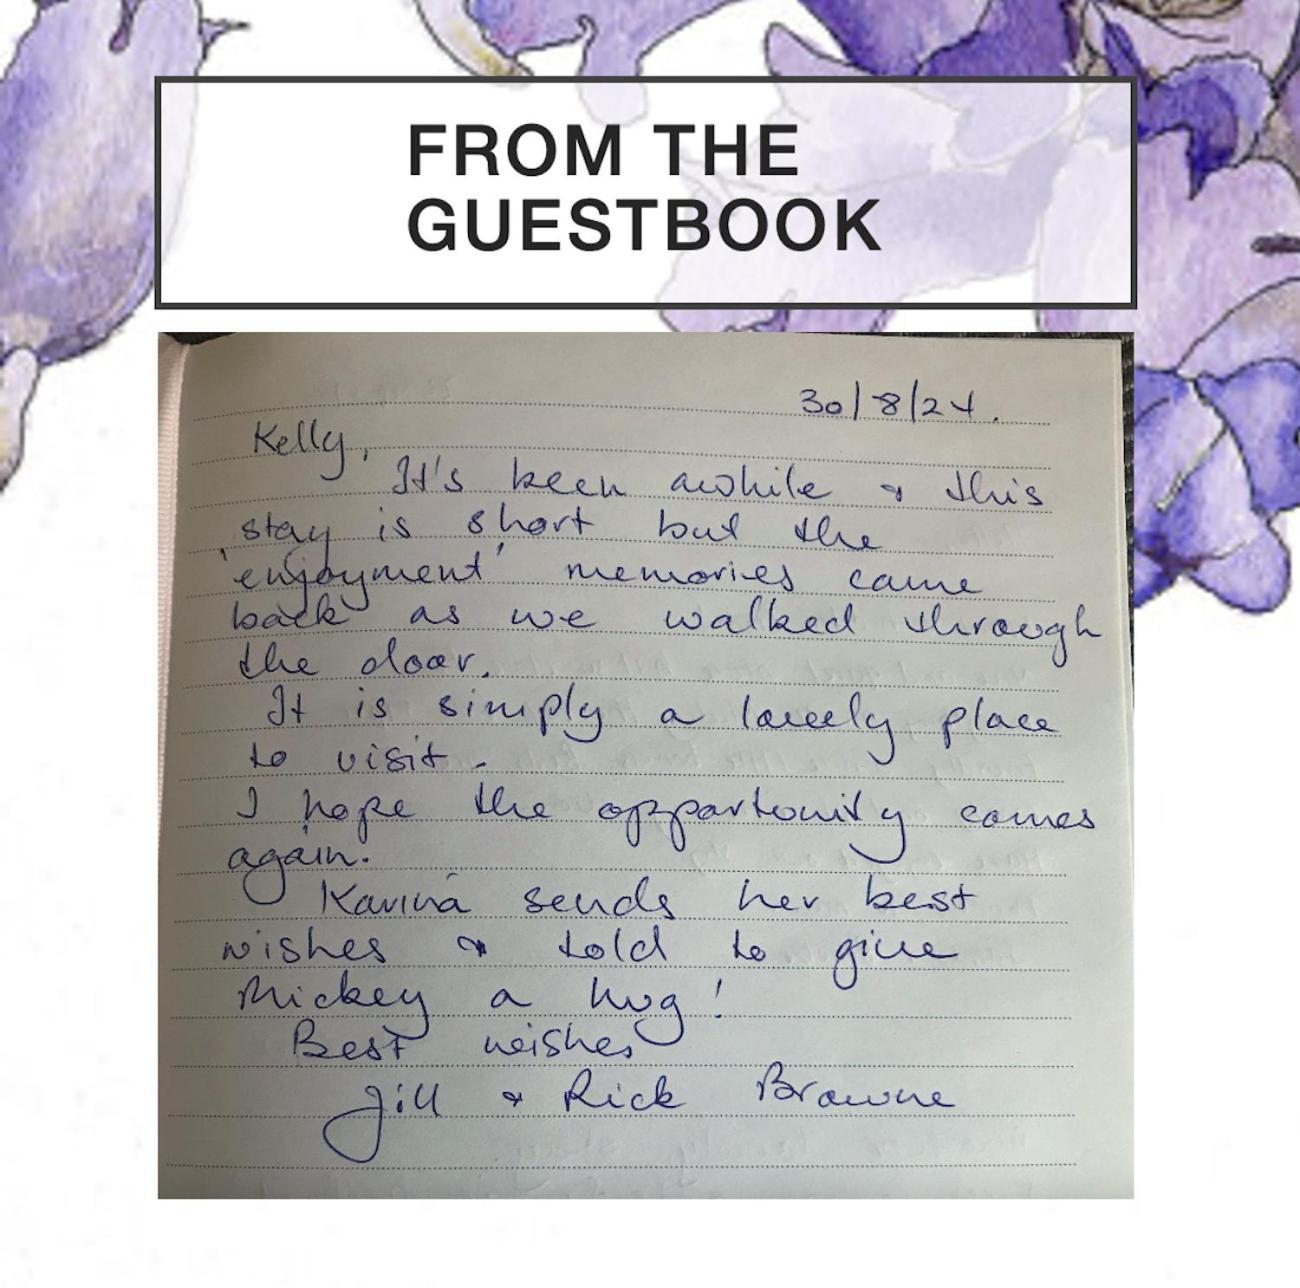 FROM THE
GUESTBOOK
30/8/24.
Kelly,
It's been awhile & this
stay is short but the
'enjoyment' memories came
back as we walked through
the door.
It is simply a lovely place
to visit.
I hope the opportunity comes
again.
Karina sends her best
wishes & told to give
Mickey a hug!
Best wishes
Jill & Rick Browne